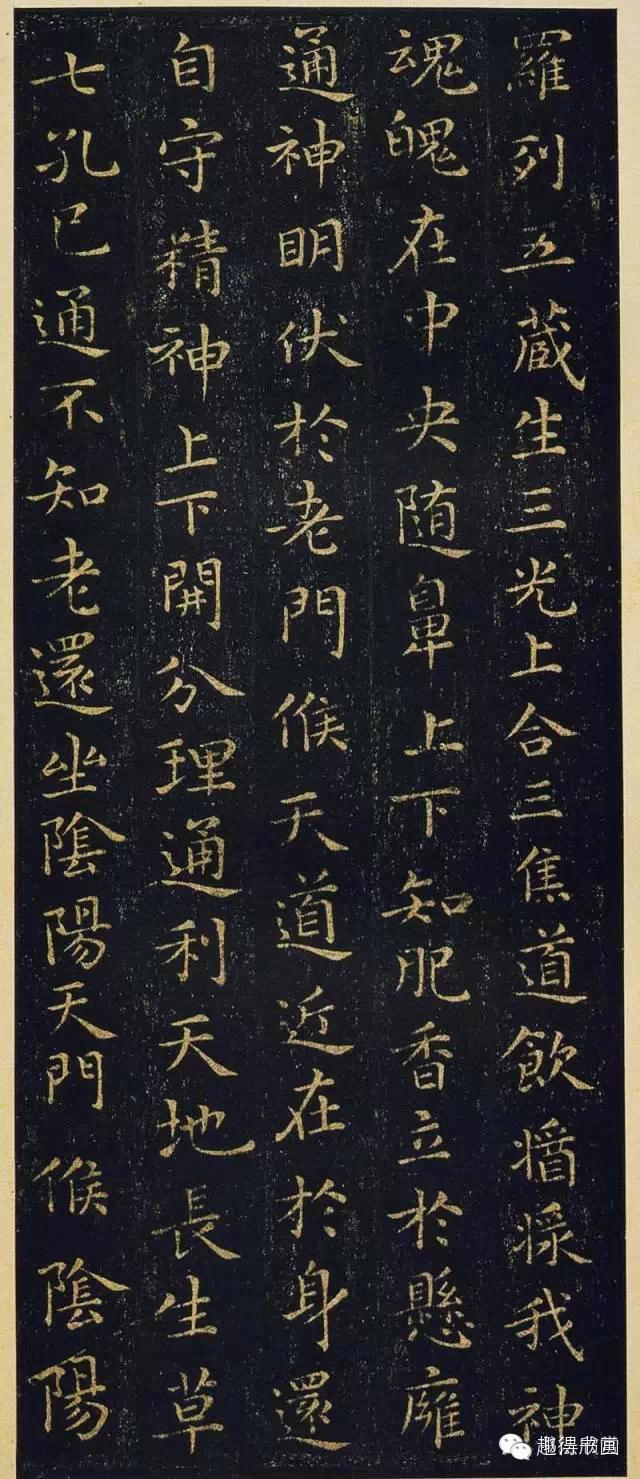 羅列五蔵生三光上合三焦道飲醬漿我神
魂魄在中央随鼻上下知肥香立於懸膺
通神明伏於老門候天道近在於身還
自守精神上下開分理通利天地長生草
七孔已通不知老還坐陰陽天門候陰陽